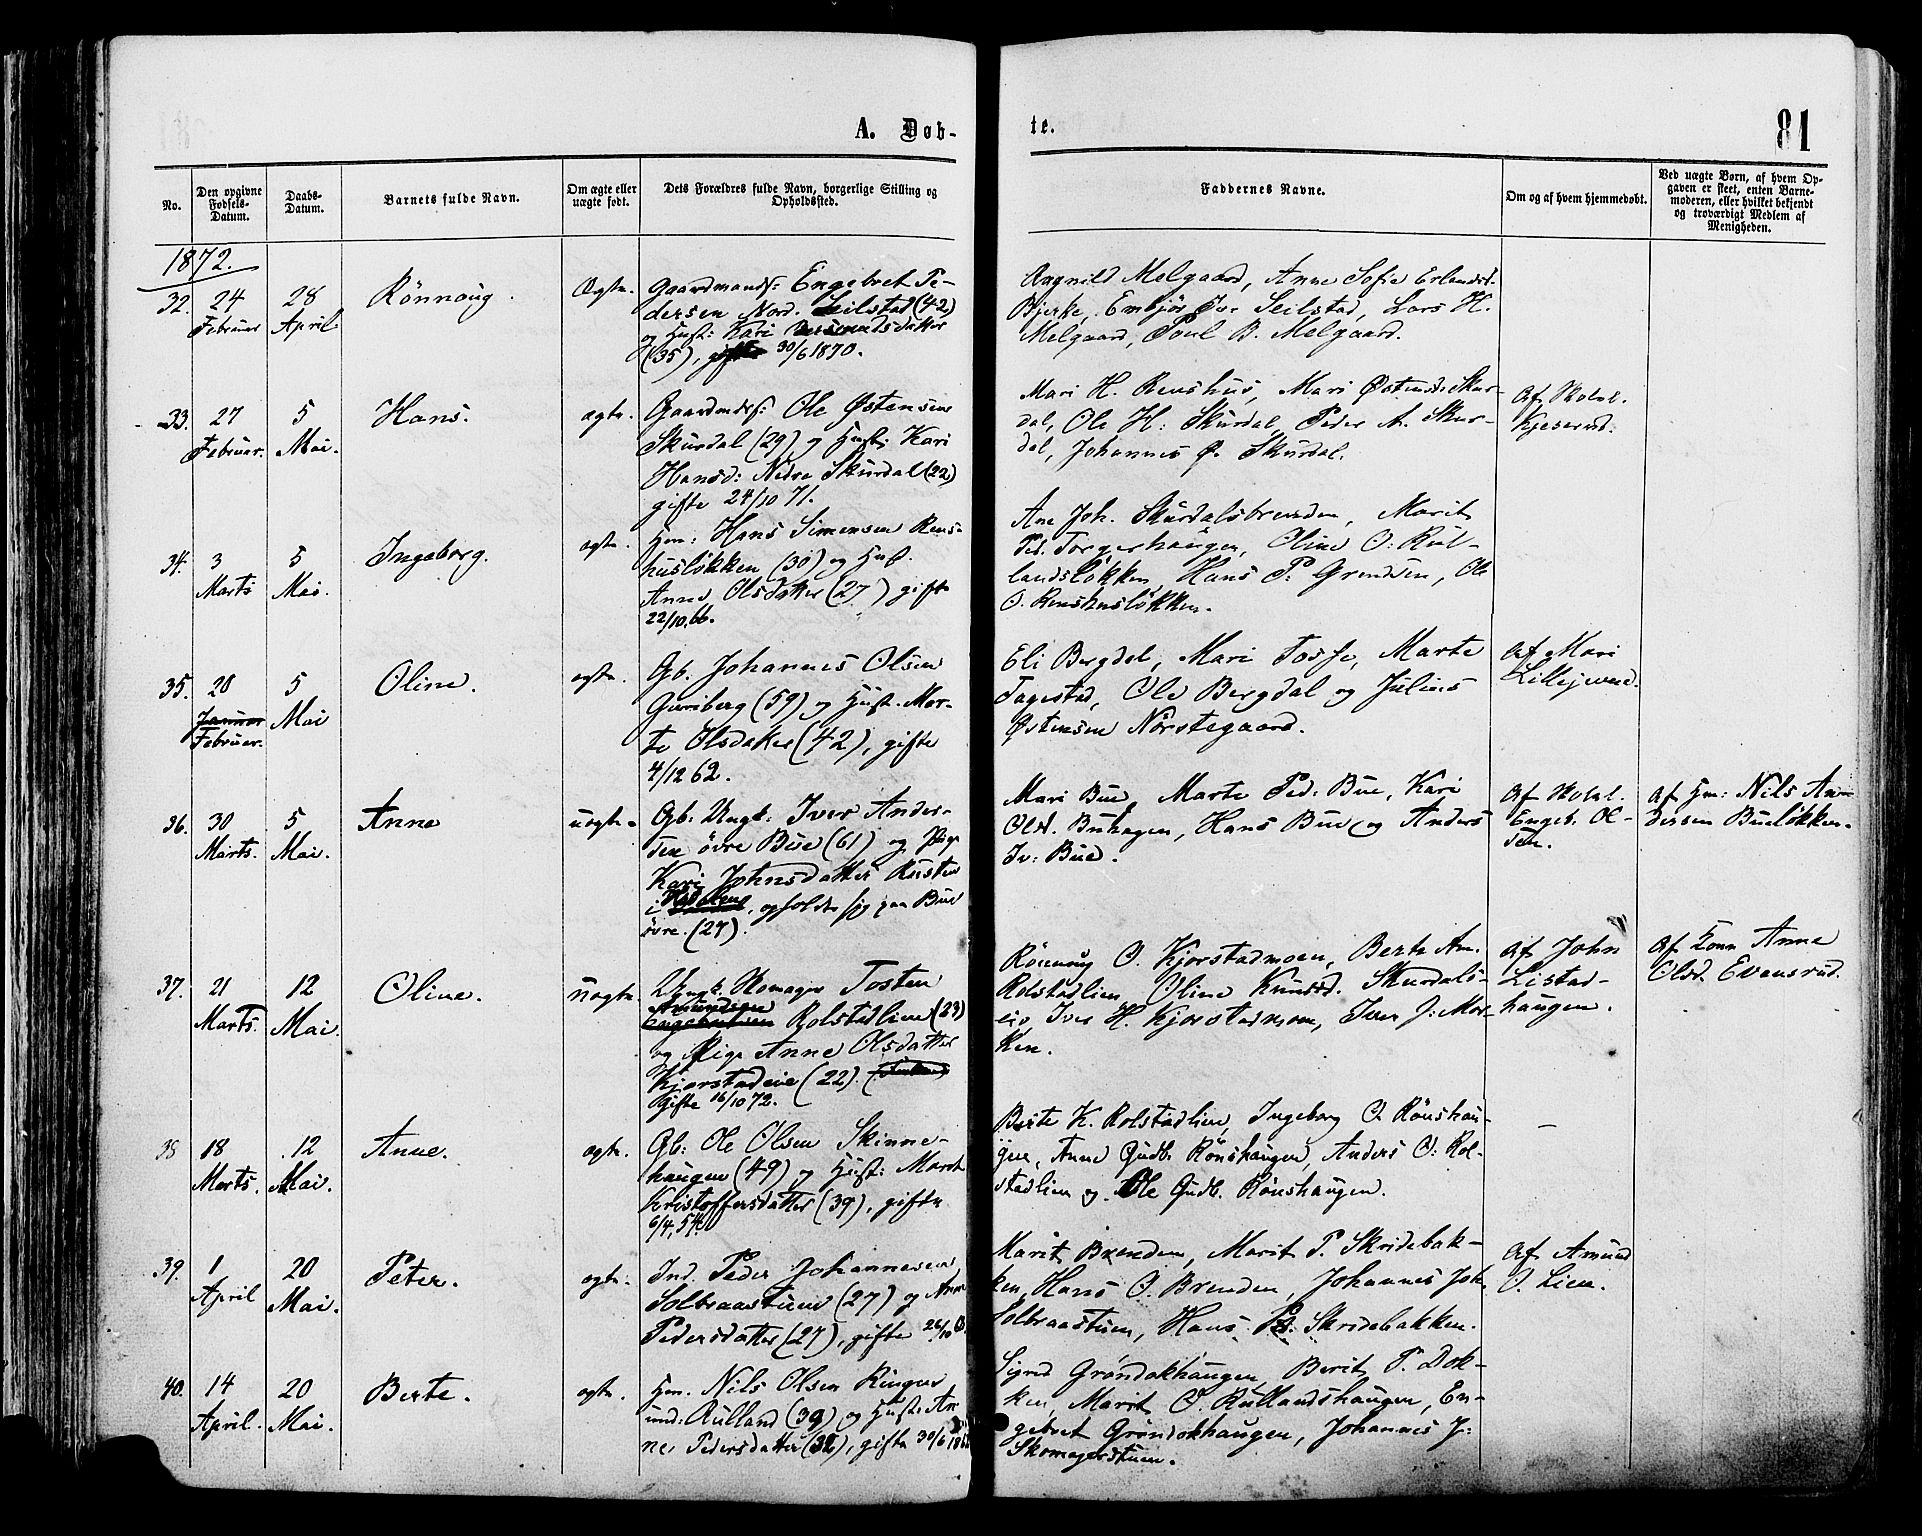 A. Døb-
te.
81
No.
Den opgivne
Fødsels-
Datum.
Daabs-
Datum.
Barnets fulde Navn.
Om ægte eller
uægte født.
Dets Forældres fulde Navn, borgerlige Stilling og
Opholdssted.
Faddernes Navne.
Om og af hvem hjemmedøbt.
Ved uægte Børn, af hvem Op-
gaven er skeet, enten Barne-
moderen, eller hvilket bekjendt
og troværdigt Medlem af
Menigheden.
1872.
32.
24
Februar
28
April
Rönnoug.
Ægte.
Gaardmands: Engebret Pe-
dersen Nord. Seilstad (42)
og Hust: Kari
(35), gifte 30/6 1870.
Ragnild Melgaard, Anne Sofie Erlandsd.
Bjerke, Embjör Iv. Seilstad, Lars H.
Melgaard, Poul B. Melgaard.
33.
27
Februar.
5
Mai.
Hans.
ægte.
Gaardmds: Ole Østensen
Skurdal (29) og Hust: Kari
Hansd: Nedre Skurdal (22)
gifte 24/10 71.
Mari H. Renshus, Mari Østensd: Skur-
dal, Ole H: Skurdal, Peder A. Skur-
dal, Johannes Ø. Skurdal.
Af Skolel.
Kjeserud.
34.
3
Marts
5
Mai.
Ingeborg.
ægte.
Hm: Hans Simensen Rens-
husløkken (30) og Hust.
Anne Olsdater (27) gifte
22/10.66.
Ane Joh. Skurdalsbrenden, Marit
Ped. Torgerhaugen, Oline O. Rul-
landsløkken, Hans P. Grendsen, Ole
O. Renshusløkken.
35.
20
Januar
Februar.
5
Mai
Oline.
ægte.
Gb. Johannes Olsen
Guriberg (59) og Hust. Mar-
te Olsdater (42), gifte
4/12 62.
Eli Bergdal, Mari Tosse, Marte
Fagestad, Ole Bergdal og Julius
Østensen Nørstegaard.
Af Mari
36.
30
Marts.
5
Mai.
Anne
uægte.
Gb. Ungk: Iver Anders-
øvre Bue (61) og Pige
Kari Johnsdatter Rusten
i , opholder sig paa Bue
øvre. (27).
Mari Bue, Marte Ped. Bue, Kari
Olsd. Buhagen, Hans Bue og Anders
Iv: Bue.
Af Skolel.
Engeb. Ol-
sen.
Af Hm: Nils An-
dersen Bueløkken.
37.
21
Marts.
12
Mai.
Oline.
uægte.
Ungk. Skomager Tosten
Amundsen
Engebretsen Rolstadlien (23)
og Pige Anne Olsdatter
Kjorstadeie (22).
Gifte 16/10 72.
Rönnoug O. Kjorstadmoen, Berte Am.
Rolstadlien, Oline Knudsd. Skurdals-
eie, Iver H. Kjorstadmoen, Iver J: Mor-
ken.
Af John
Listad-
haugen.
Af Konn Anne
Olsd. Evensrud.
38
18
Marts.
12
Mai.
Anne.
ægte.
Gb: Ole Olsen Skinne-
haugen (49) og Hust: Marit
Kristoffersdatter (39), gifte
6/4, 54.
Berte K. Rolstadlien, Ingeborg O. Rönshau-
gen, Anne Gudb. Rönshaugen, Anders O: Rol-
stadlien og Ole Gudb. Rönshaugen.
–
39.
1
April
20
Mai.
Peter.
ægte.
Ind. Peder Johannesen
Solbraastuen (27) og Anne
Pedersdatter (27), gifte 26/10
Marit Brenden, Marit P. Skridebak-
ken, Hans O. Brenden, Johannes Joh.
Solbraastuen, Hans P. Skridebakken.
Af Amund
O. Lien.
40.
14
April.
20
Mai.
Berte.
ægte.
Hm. Nils Olsen Ringen
und: Rulland (39) og Hust: An-
ne Pedersdatter (32), gifte 30/6 18
Sigrid Grøndokhaugen, Berit P. Dok-
ken, Marit O. Rullandshaugen, En-
gebret Grøndokhaugen, Johannes J:
Skomagerstuen.